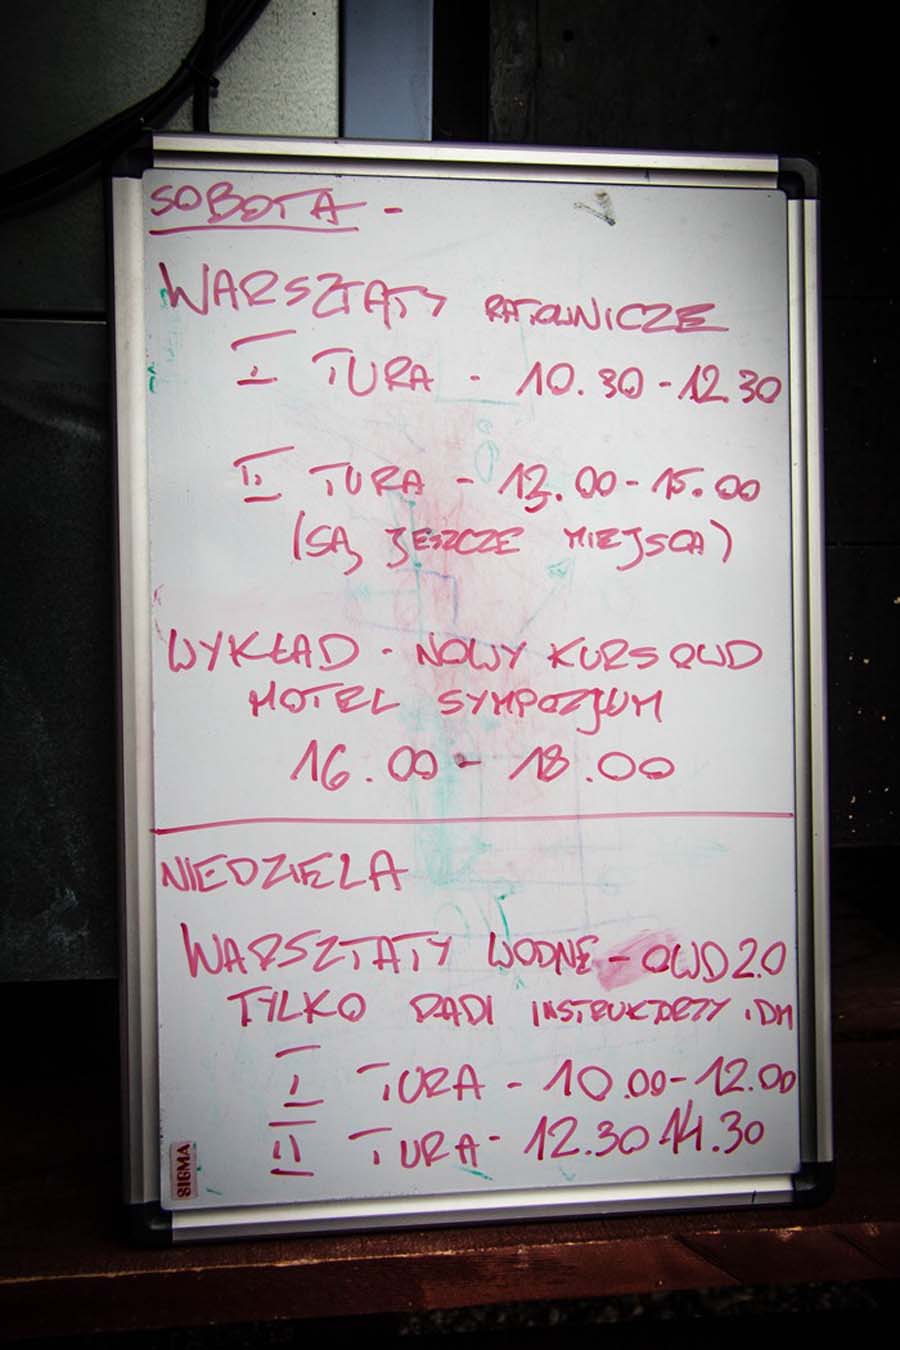 SOBOTA -
WARSZTATY RATOWNICZE
I TURA - 10.30 - 12.30
II TURA - 13.00 - 15.00
(SĄ JESZCZE MIEJSCA)
WYKŁAD - NOWY KURS OWD
HOTEL SYMPOZJUM
16.00 - 18.00
NIEDZIELA
WARSZTATY WODNE - OWD 2.0
TYLKO PADI INSTRUKTORZY i DM
I TURA - 10.00 - 12.00
II TURA - 12.30 14.30
SIGMA